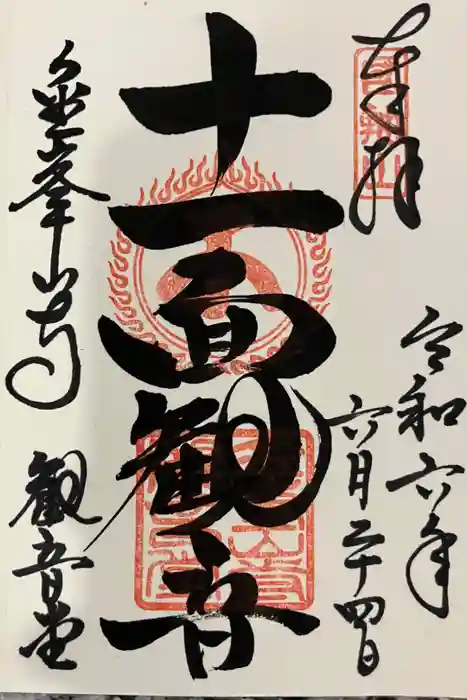 奉拝
令和六年
六月二十四日
十一面観音
金峯山寺
観音堂